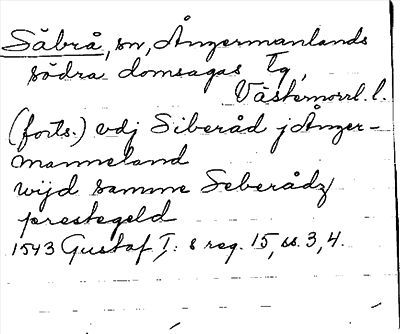 Säbrå, sn, Ångermanlands
södra domsagas tg,
Västernorrl. l.
(forts.) vdj Siberåd j Ånger-
manneland
wijd samme Seberådz
prestegeld
1543 Gustaf I: s reg. 15, ss. 3, 4.